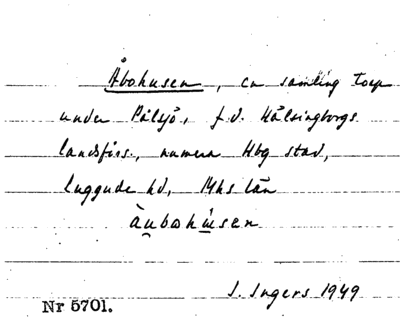 Åbohusen, en samling torp
under Pålsjö, f.d. Hälsingborgs
landsförs., numera Hbg stad,
Luggude hd, Mhs län
àubohusen
I. Ingers 1949
Nr 5701.